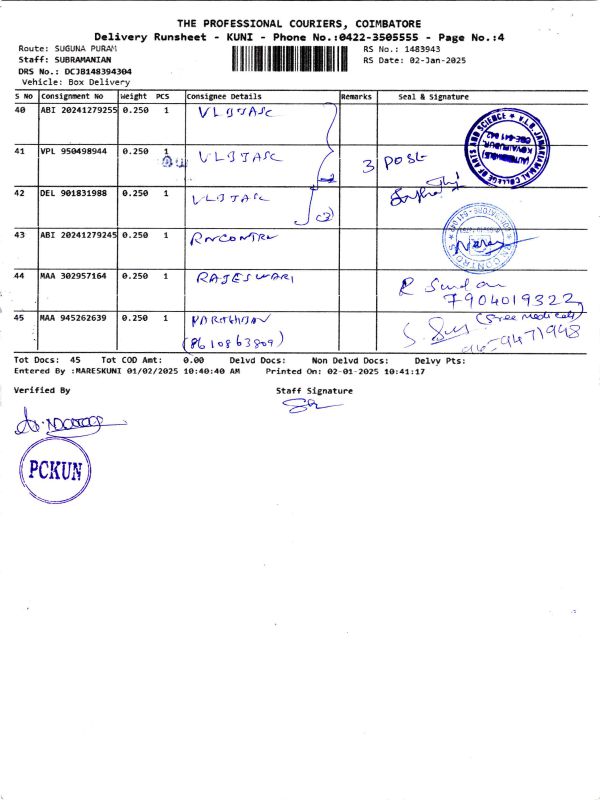 THE PROFESSIONAL COURIERS, COIMBATORE
Delivery Runsheet - KUNI - Phone No.:0422-3505555 - Page No.:4
Route: SUGUNA PURAM RS No.: 1483943
Staff: SUBRAMANIAN RS Date: 02-Jan-2025
DRS No.: DCJB148394304
Vehicle: Box Delivery
S No Consignment No Weight PCS Consignee Details Remarks Seal & Signature
40 ABI 20241279255 0.250 1 VLBJASC
41 VPL 950498944 0.250 1 VLBJASC 3 POST
V.L.B. JANAKIAMMAL COLLEGE OF ARTS AND SCIENCE
(AUTONOMOUS)
KOVAIPUDUR,
CBE-641 042
42 DEL 901831988 0.250 1 VLBJASC (2)
43 ABI 20241279245 0.250 1 RNCONTRL
44 MAA 302957164 0.250 1 RAJESWARI R
7904019322
45 MAA 945262639 0.250 1 PARTHIBAN (Sree Medicals)
(8610863809)
Tot Docs: 45 Tot COD Amt: 0.00 Delvd Docs: Non Delvd Docs: Delvy Pts:
Entered By :MARESKUNI 01/02/2025 10:40:40 AM Printed On: 02-01-2025 10:41:17
Verified By Staff Signature
PCKUN